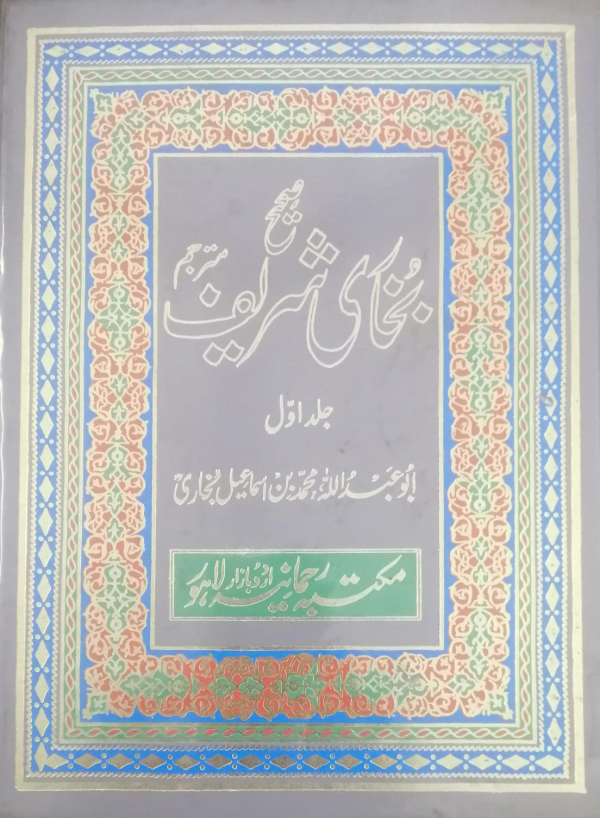 صحیح
بخاری شریف مترجم
جلد اوّل
ابُو عبدُ اللہ محمّد بن اسماعیل بُخاری
مکتبہ رحمانیہ اردو بازار لاہور